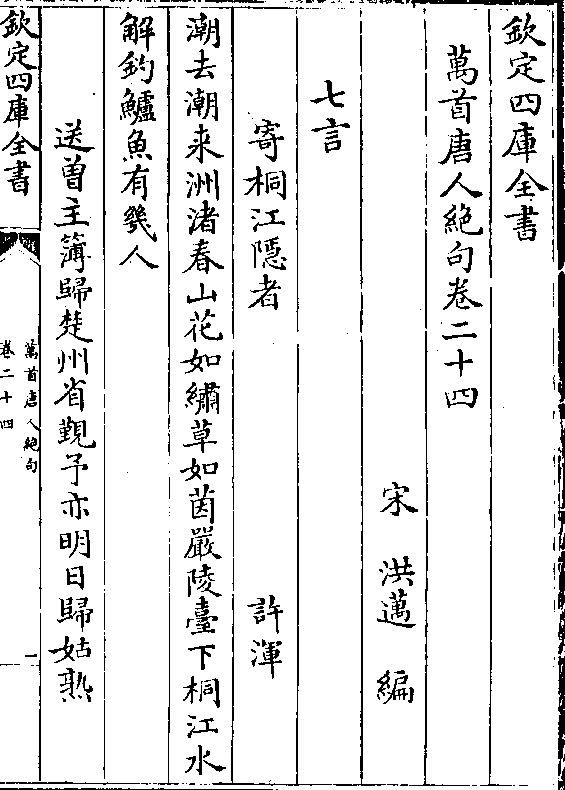 欽定四庫全書
萬首唐人絶句卷二十四
宋 洪邁 編
七言
寄桐江隱者 許渾
潮去潮来洲渚春山花如繡草如茵嚴陵臺下桐江水
解釣鱸魚有幾人
送曽主簿歸楚州省覲予亦明日歸姑熟
欽定四庫全書
萬首唐人絶句
卷二十四
一